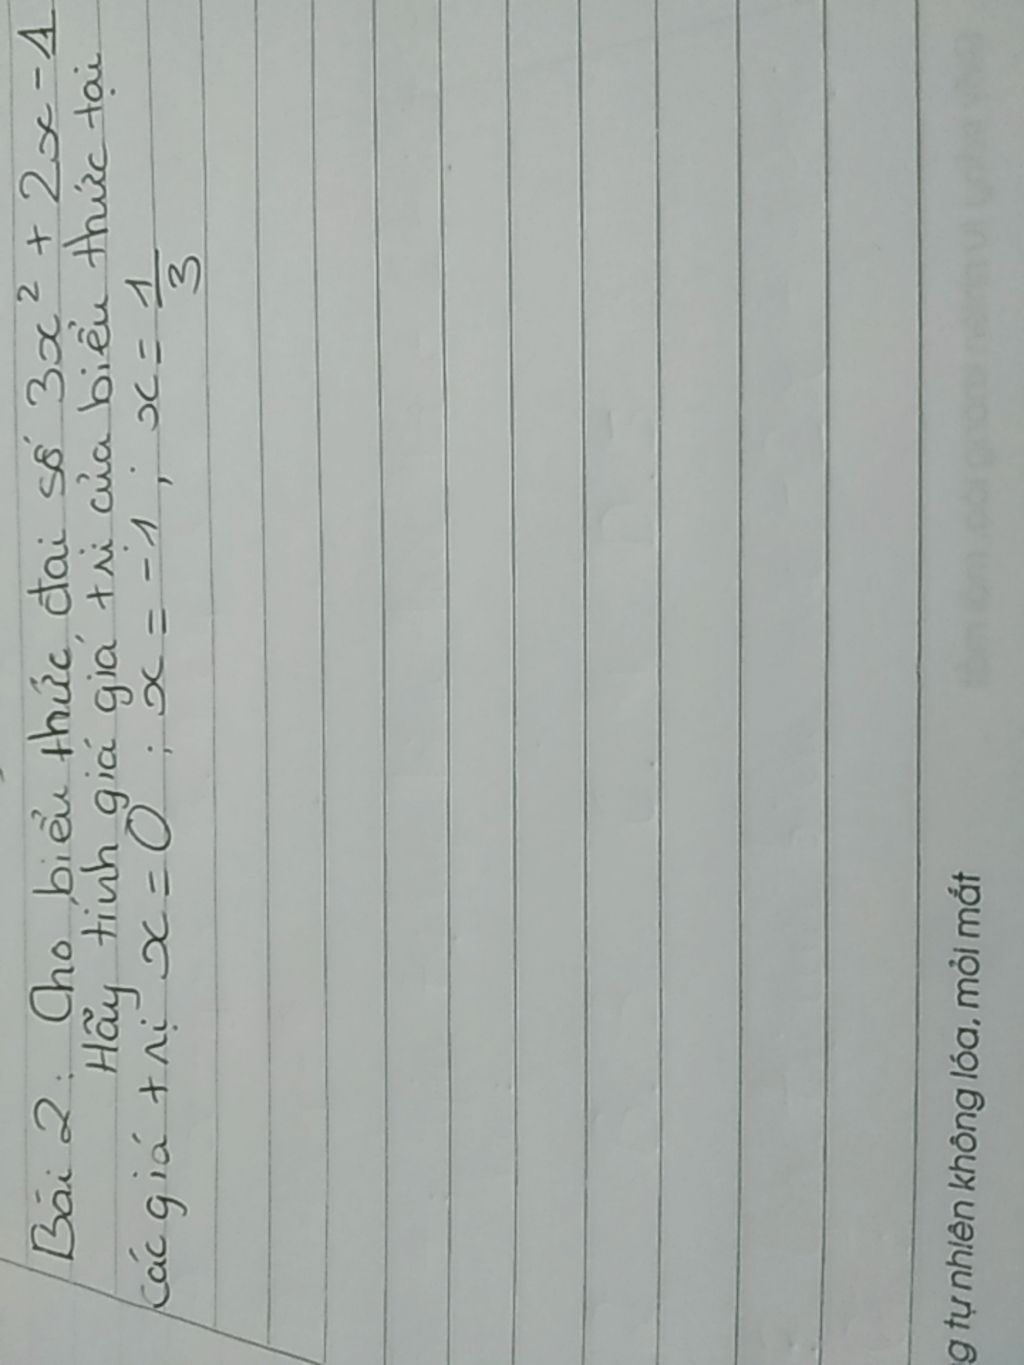 Bài 2: Cho biểu thức đại số 3x² + 2x - 1
Hãy tính giá giá trị của biểu thức tại
các giá trị x = 0 ; x = -1 ; x = 1/3
g tự nhiên không lóa, mỏi mắt